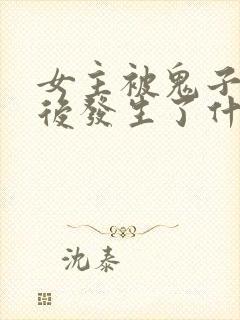 女主被鬼子
後發生了什
沈泰